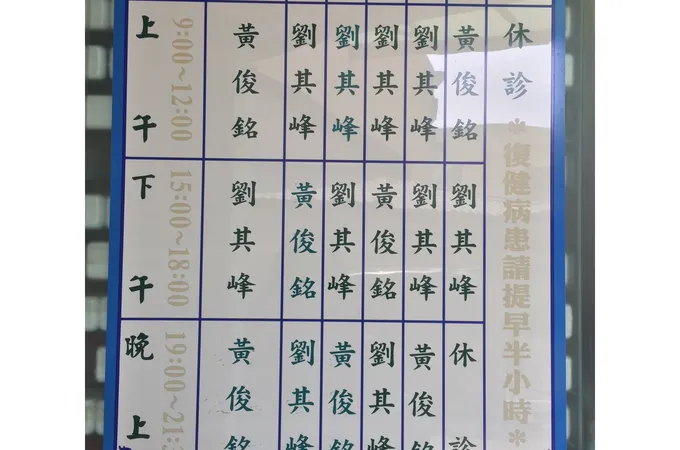 上午 9:00~12:00 黃俊銘 劉其峰 劉其峰 劉其峰 劉其峰 黃俊銘 休診
下午 15:00~18:00 劉其峰 黃俊銘 劉其峰 黃俊銘 劉其峰 劉其峰
晚上 19:00~21:3 黃俊銘 劉其峰 黃俊銘 劉其峰 黃俊銘 休診
*復健病患請提早半小時*